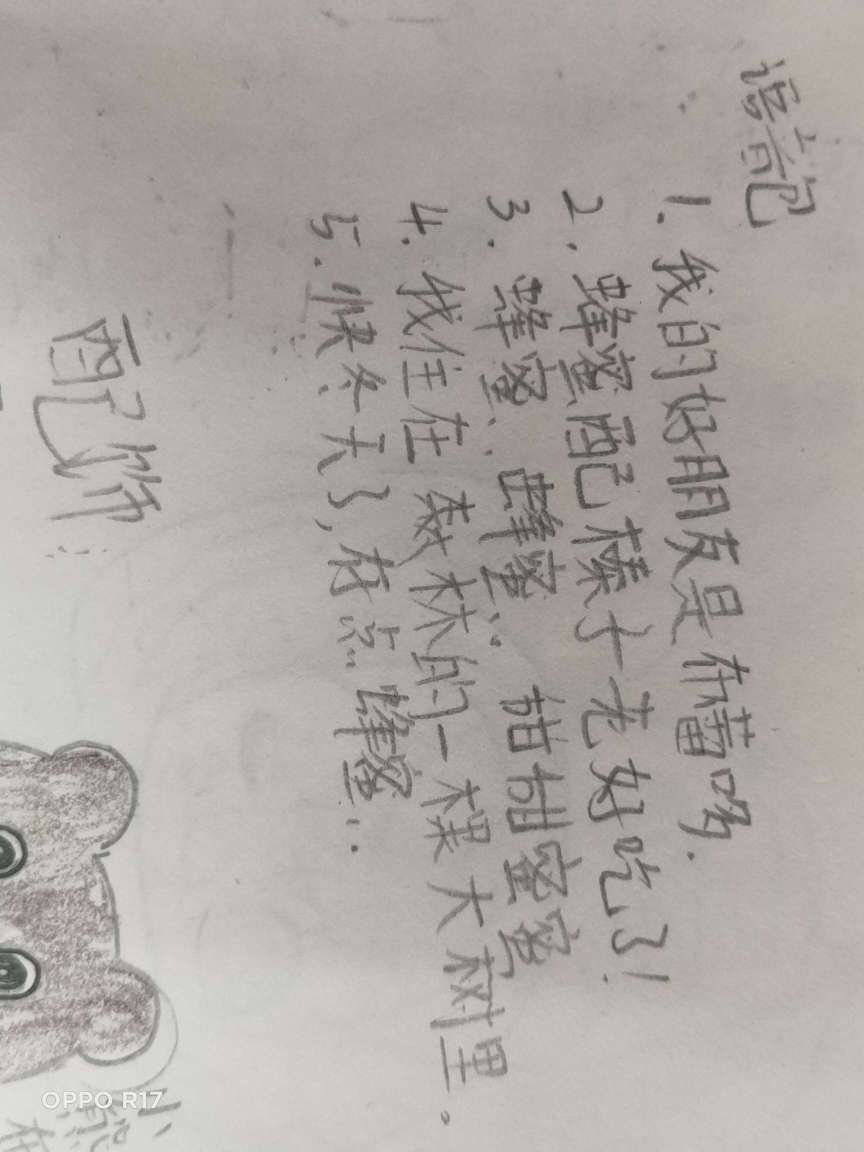 语音包
1. 我的好朋友是布蕾哟.
2. 蜂蜜配榛子老好吃了!
3. 蜂蜜.. 蜂蜜.. 甜甜蜜蜜
4. 我住在森林的一棵大树里。
5. 快冬天了,存点蜂蜜..
配饰
小熊
OPPO R17